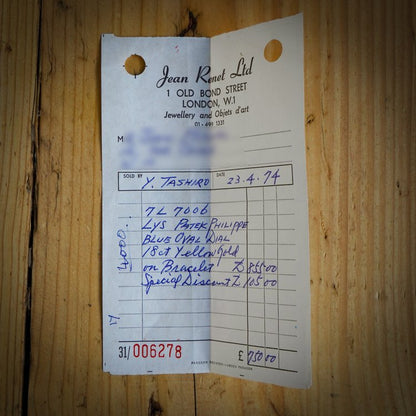 Jean Renet Ltd
1 OLD BOND STREET
LONDON, W.1
Jewellery and Objets d'art
01-499 1331
M
SOLD BY Y. TASHIRO DATE 23.4.74
7L 7006
LYS PATEK PHILIPPE
BLUE OVAL DIAL
18ct Yellow Gold
on Bracelet £ 855 00
Special Discount £ 105 00
31/ 006278 £ 750 00